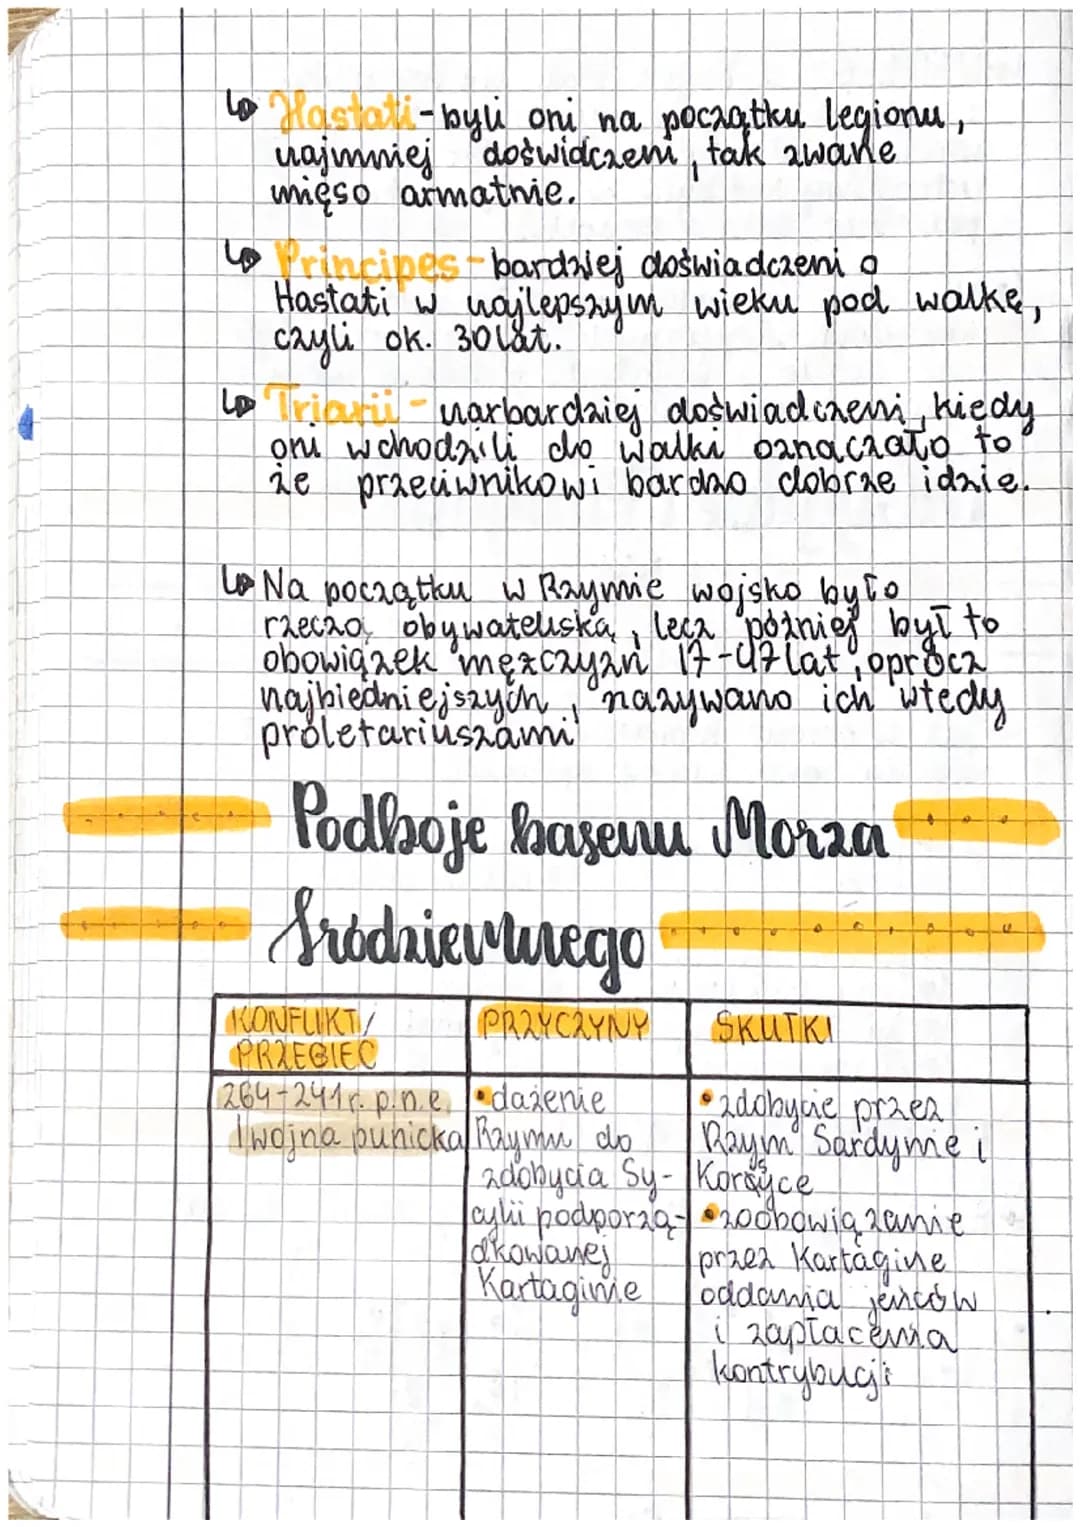 ↳ Hastati - byli oni na początku legionu,
najmniej doświdczeni, tak zwane
mięso armatnie.
↳ Principes - bardziej doświadczeni o
Hastati w najlepszym wieku pod walkę,
czyli ok. 30 lat.
↳ Triarii - narbardziej doświadczeni, kiedy
oni wchodzili do walki oznaczało to
że przeciwnikowi bardzo dobrze idzie.
↳ Na początku w Rzymie wojsko było
rzeczą obywatelską, lecz później był to
obowiązek mężczyzn 17-47 lat, oprócz
najbiedniejszych, nazywano ich wtedy
proletariuszami
Podboje basenu Morza
Śródziemnego
KONFLIKT/ PRZYCZYNY SKUTKI
PRZEBIEG
264-241 r. p.n.e.
I wojna punicka
• dążenie
Rzymu do
zdobycia Sy-
cylii podporzą-
dkowanej
Kartaginie
• zdobycie przez
Rzym Sardynie i
Korsyce
• zoobowiązanie
przez Kartagine
oddania jeńców
i zapłacenia
kontrybucji